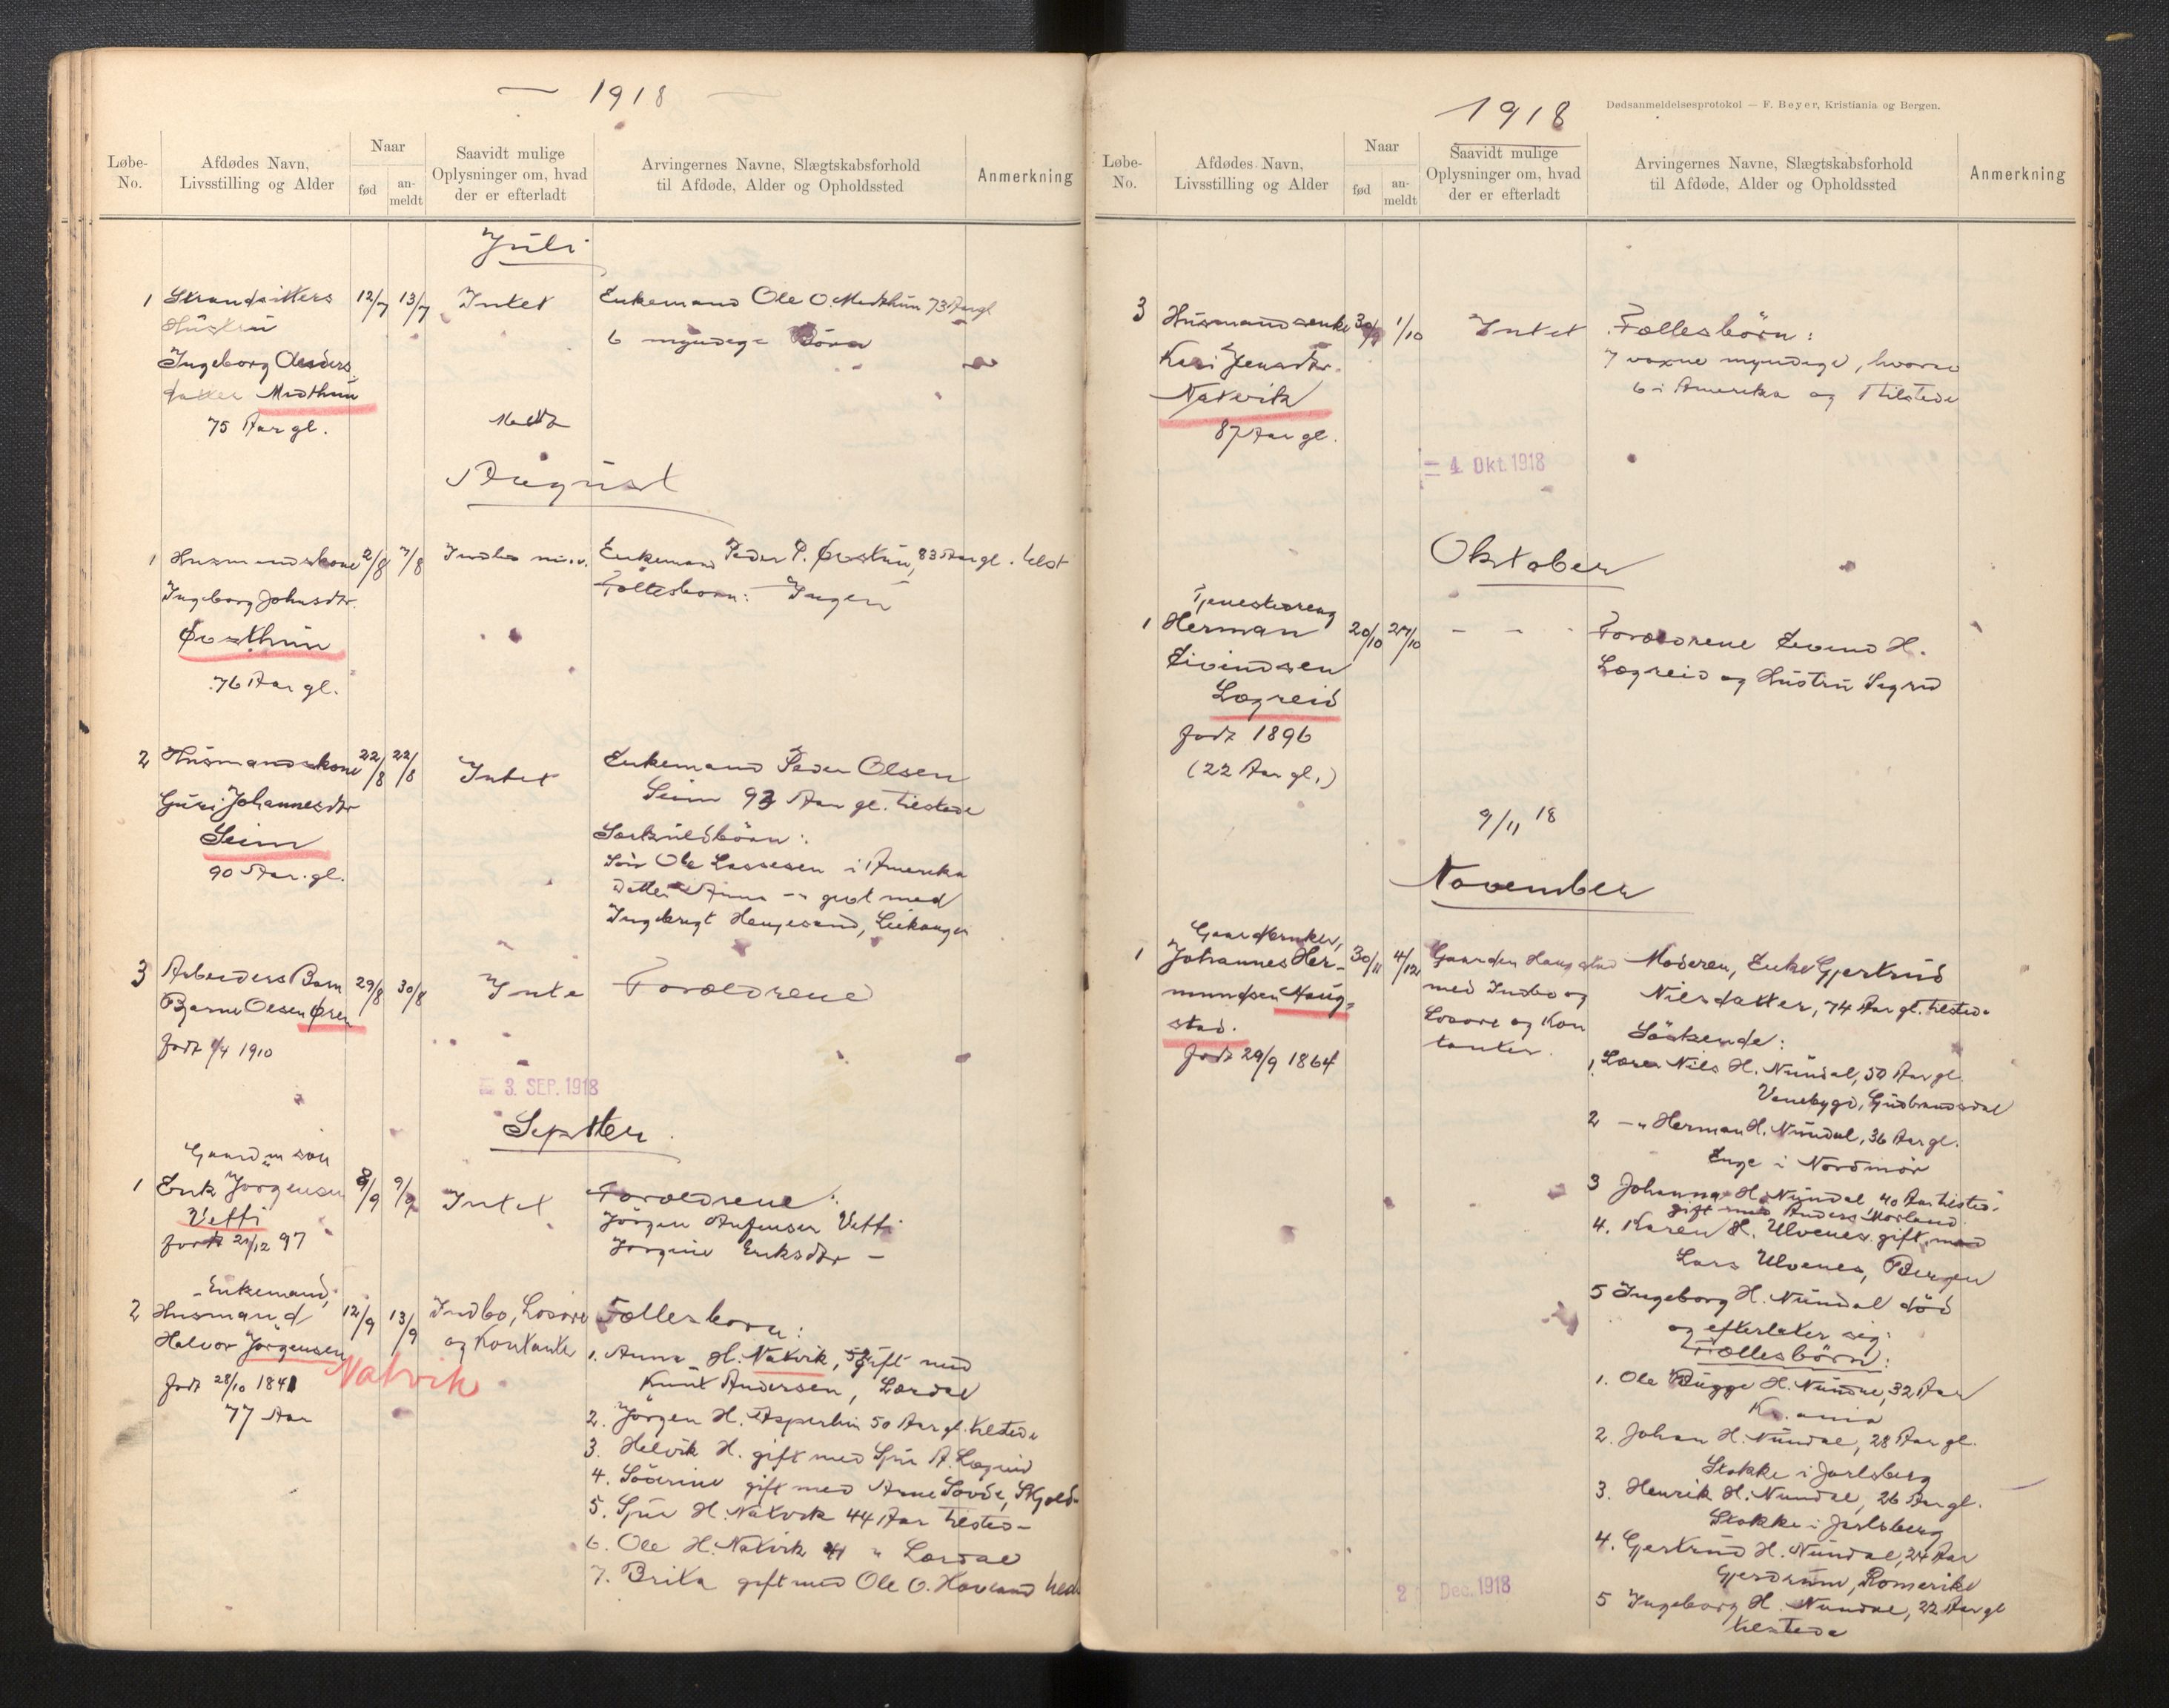 1918
Løbe-
No.
Afdødes Navn,
Livsstilling og Alder
Naar
fød
an-
meldt
Saavidt mulige
Oplysninger om, hvad
der er efterladt
Arvingernes Navne, Slægtskabsforhold
til Afdøde, Alder og Opholdssted
Anmerkning
Juli
1 Strandsitters 12/7 13/7 Intet Enkemand Ole O. Midthun 73 Aar gl
Hustru
6 myndige Börn
Ingeborg Anders
datter Midthun
75 Aar gl.
August
1 Husmandskone 2/8 7/8 Indbo m.v. Enkemand Peder P. Øvsthun, 83 Aar gl. tilst
Ingeborg Johnsdtr.
Fællesborn: Ingen
Øvsthun
76 Aar gl.
2 Husmandskone 22/8 22/8 Intet Enkemand Peder Olsen
Seim 93 Aar gl. tilstede
Guri Johannesdtr
Seim
Særkuldbörn:
90 Aar gl.
Sön Ole Lassesen i Amerika
Datter Anna -" gift med
Ingebrigt Haugesand, Leikanger
3 Arbeiders Barn 29/8 30/8 Inte Forældrene
Bjarne Olsen Øren
født 1/4 1910
3. SEP. 1918
Septter
Gaardm sön
1 Erik Jörgensen 8/9 9/9 Intet Forældrene:
Vetti
Jörgen Anfinsen Vetti
født 21/12 97
Jorgine Eriksdtr -
Enkemand,
2 Husmand 12/9 13/9 Indbo, Losøre Fællesborn:
Halvor Jörgensen
og Kontanter
Natvik
1. Anna H. Natvik, 52 gift med
Knut Andersen, Lærdal
født 28/10 1841
77 Aar
2. Jörgen H. Asperhim 50 Aar gl. tilstede
3. Helvik H. gift med Sjur A. Lægreid
4. Söverine gift med Arne Sovde, Skjold-
5. Sjur H. Natvik 44 Aar tilsted-
6. Ole H. Natvik 41 " Lærdal
7. Brita gift med Ole O. Hovland tilst
Dødsanmeldelsesprotokol — F. Beyer, Kristiania og Bergen.
1918
Løbe-
No.
Afdødes Navn,
Livsstilling og Alder
Naar
fød
an-
meldt
Saavidt mulige
Oplysninger om, hvad
der er efterladt
Arvingernes Navne, Slægtskabsforhold
til Afdøde, Alder og Opholdssted
Anmerkning
3 Husmandsenke 30/9 1/10 Intet Fællesbörn:
Kari Jensdtr.
7 voxne myndige, hvorav
Natvik
6 i Amerika og 1 tilstede
87 Aar gl.
4. Okt. 1918
Oktober
Tjenestedreng
1 Herman 20/10 27/10 - - - Forældrene Eivind H.
Eivindsen
Lægreid og Hustru Sigrid
Lægreid
født 1896
(22 Aar gl.)
9/11 18
November
Gaardbruker,
1 Johannes Her- 30/11 4/12 Gaarden Haugstad Moderen, Enke Gjertrud
mundsen Haug-
med Indbo og
Nilsdatter, 74 Aar gl. tilsted-
stad.
Losøre og Kon
Söskende:
født 29/9 1864
tanter.
1. Lærer Nils H. Nundal, 50 Aar gl.
Venebygd, Gudbrandsdal
2 -" Herman H. Nundal, 36 Aar gl.
Enge i Nordmör
3 Johanna H. Nundal 40 Aar tilsted-
gift med Anders Morland
4. Karen H. Ulvenes gift med
Lars Ulvenes, Bergen
5 Ingeborg H. Nundal död
og efterlater sig:
Fællesbörn:
1. Ole Bugge H. Nundal, 32 Aar
Kr.ania
2. Johan H. Nundal, 28 Aar gl.
Stokke i Jarlsberg
3. Henrik H. Nundal, 26 Aar gl.
Stokke i Jarlsberg
4. Gjertrud H. Nundal, 24 Aar
Gjerdrum, Romerike
5 Ingeborg H. Nundal, 22 Aar gl
tilstede
2 Dec. 1918